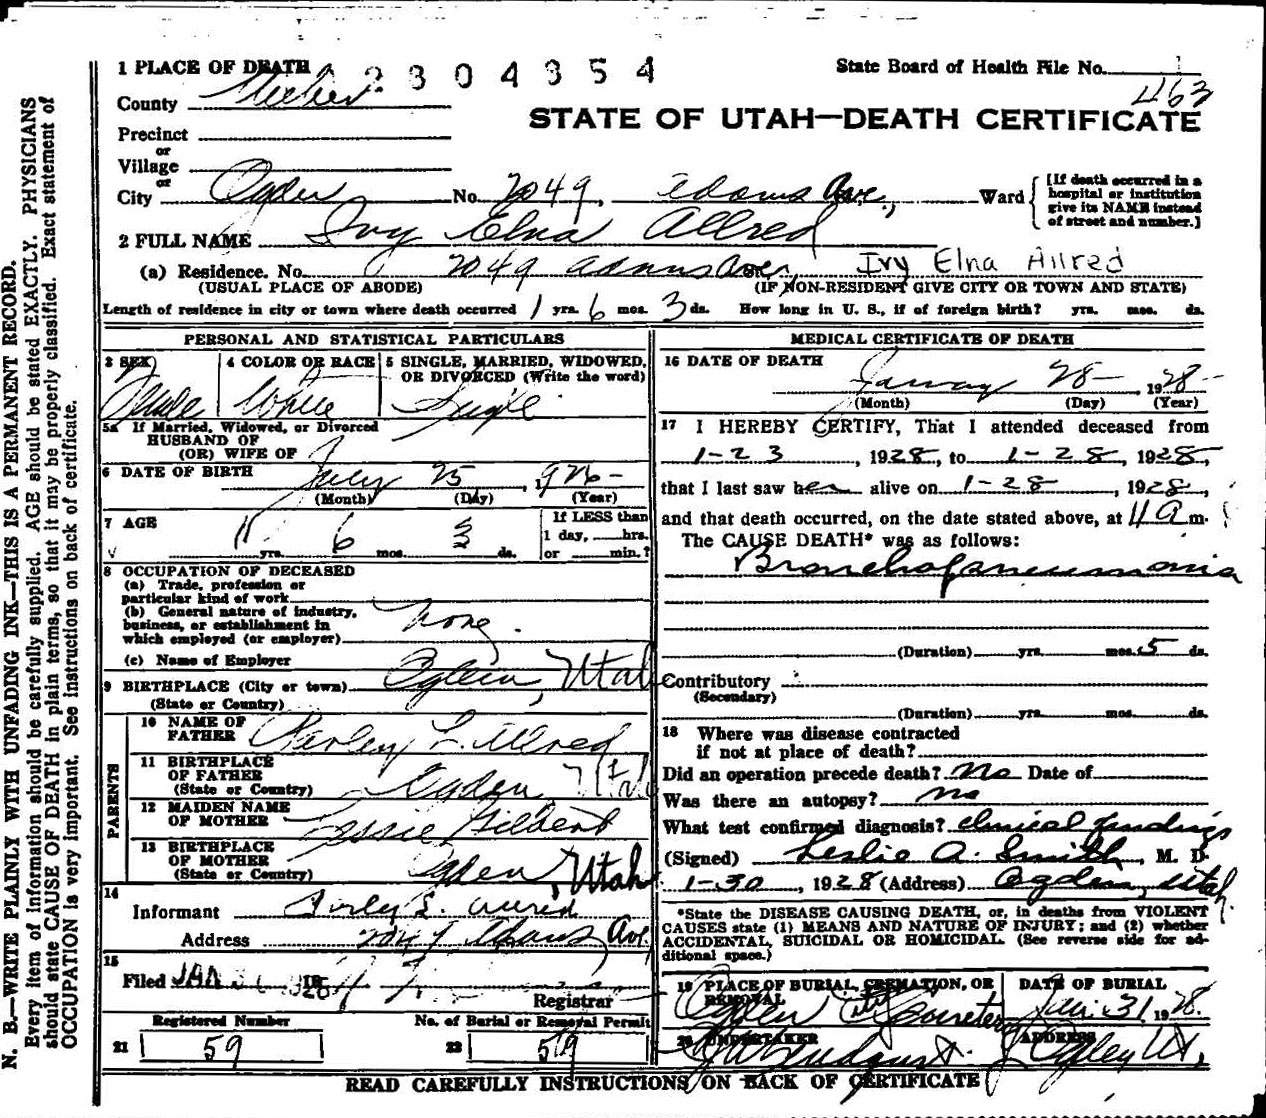 1 PLACE OF DEATH 2304354 State Board of Health File No. 463
County Weber
STATE OF UTAH—DEATH CERTIFICATE
Precinct
or
Village
or
City Ogden No. 2049, Adams Ave., Ward
[If death occurred in a
hospital or institution
give its NAME instead
of street and number.]
2 FULL NAME Ivy Elna Allred
(a) Residence. No. 2049 Adams Ave. Ivy Elna Allred
(USUAL PLACE OF ABODE) (IF NON-RESIDENT GIVE CITY OR TOWN AND STATE)
Length of residence in city or town where death occurred 1 yrs. 6 mos. 3 ds. How long in U. S., if of foreign birth? yrs. mos. ds.
PERSONAL AND STATISTICAL PARTICULARS
3 SEX 4 COLOR OR RACE 5 SINGLE, MARRIED, WIDOWED,
OR DIVORCED (Write the word)
Female White Single
5a If Married, Widowed, or Divorced
HUSBAND OF
(OR) WIFE OF
6 DATE OF BIRTH July 25, 1926
(Month) (Day) (Year)
7 AGE 1 yrs. 6 mos. 3 ds.
If LESS than
1 day, hrs.
or min.?
8 OCCUPATION OF DECEASED
(a) Trade, profession or
particular kind of work
(b) General nature of industry,
business, or establishment in
which employed (or employer) None.
(c) Name of Employer
9 BIRTHPLACE (City or town) Ogden, Utah
(State or Country)
PARENTS
10 NAME OF
FATHER Perley L Allred
11 BIRTHPLACE
OF FATHER Ogden Utah
(State or Country)
12 MAIDEN NAME
OF MOTHER Essie Gilbert
13 BIRTHPLACE
OF MOTHER Ogden, Utah
(State or Country)
14
Informant Perley L. Allred
Address 2049 Adams Ave
15
Filed JAN 1928
Registrar
Registered Number No. of Burial or Removal Permit
21 59 22 59
MEDICAL CERTIFICATE OF DEATH
16 DATE OF DEATH
January 28, 1928
(Month) (Day) (Year)
17 I HEREBY CERTIFY, That I attended deceased from
1-23, 1928, to 1-28, 1928,
that I last saw her alive on 1-28, 1928,
and that death occurred, on the date stated above, at 11 a m.
The CAUSE DEATH* was as follows:
Bronchopneumonia
(Duration) yrs. mos. 5 ds.
Contributory
(Secondary)
(Duration) yrs. mos. ds.
18 Where was disease contracted
if not at place of death?
Did an operation precede death? no Date of
Was there an autopsy? no
What test confirmed diagnosis? clinical findings
(Signed) Leslie A. Smith, M. D.
1-30, 1928 (Address) Ogden, Utah.
*State the DISEASE CAUSING DEATH, or, in deaths from VIOLENT
CAUSES state (1) MEANS AND NATURE OF INJURY; and (2) whether
ACCIDENTAL, SUICIDAL OR HOMICIDAL. (See reverse side for ad-
ditional space.)
19 PLACE OF BURIAL, CREMATION, OR
REMOVAL DATE OF BURIAL
Ogden City Cemetery Jan. 31 1928.
20 UNDERTAKER ADDRESS
Ogden Ut.
READ CAREFULLY INSTRUCTIONS ON BACK OF CERTIFICATE
N. B.—WRITE PLAINLY WITH UNFADING INK—THIS IS A PERMANENT RECORD.
Every item of information should be carefully supplied. AGE should be stated EXACTLY. PHYSICIANS
should state CAUSE OF DEATH in plain terms, so that it may be properly classified. Exact statement of
OCCUPATION is very important. See instructions on back of certificate.